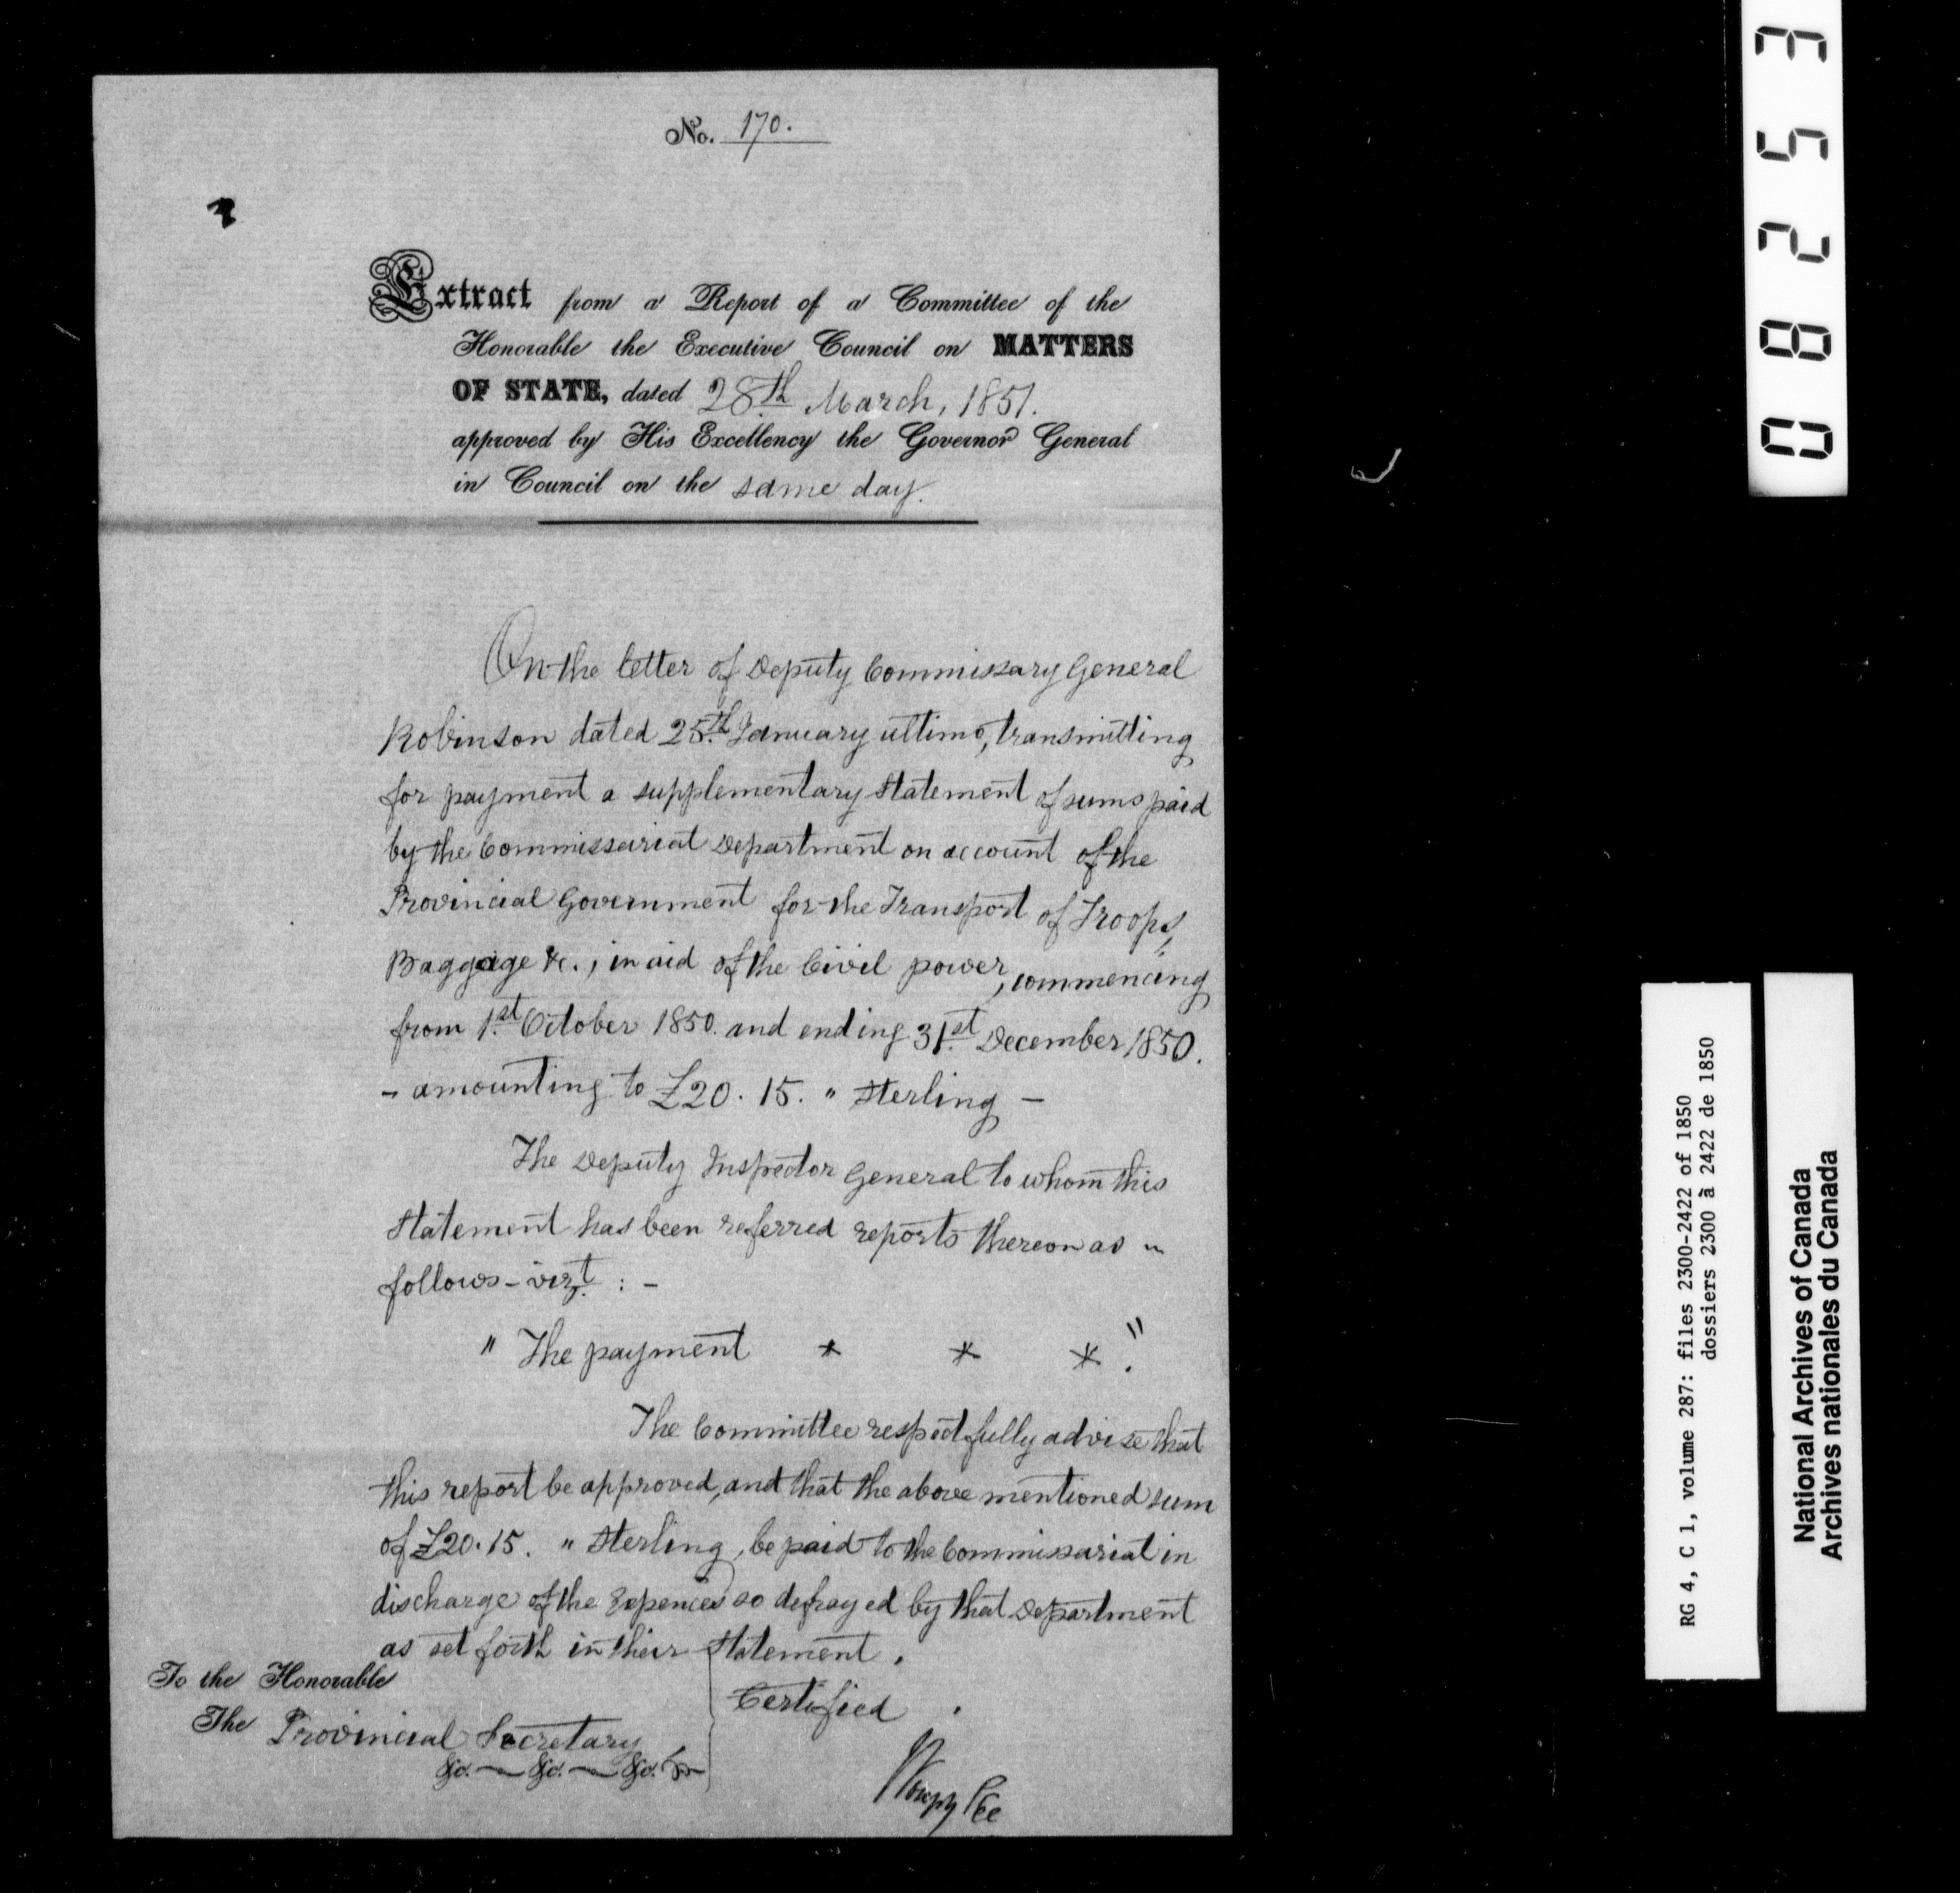 No. 170.
Extract from a Report of a Committee of the
Honorable the Executive Council on MATTERS
OF STATE, dated 28th March, 1851.
approved by His Excellency the Governor General
in Council on the same day.
On the letter of Deputy Commissary General
Robinson dated 25th January ultimo, transmitting
for payment a supplementary statement of sums paid
by the Commissariat Department on account of the
Provincial Government for the Transport of Troops,
Baggage &c., in aid of the Civil power, commencing
from 1st October 1850. and ending 31st December 1850.
- amounting to £20. 15. " Sterling -
The Deputy Inspector General to whom this
Statement has been referred reports thereon as
follows - vizt : -
" The payment * * * ."
The Committee respectfully advise that
this report be approved, and that the above mentioned sum
of £20. 15. " Sterling, be paid to the Commissariat in
discharge of the Expences so defrayed by that Department
as set forth in their Statement.
To the Honorable
The Provincial Secretary
&c. — &c. — &c.
Certified.
0 8 2 5 3
RG 4, C 1, volume 287: files 2300-2422 of 1850
dossiers 2300 à 2422 de 1850
National Archives of Canada
Archives nationales du Canada